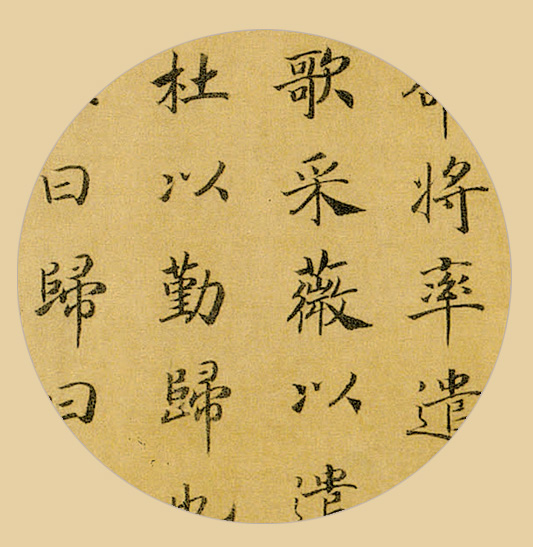 將率遣
歌采薇以遣
杜以勤歸也
曰歸曰